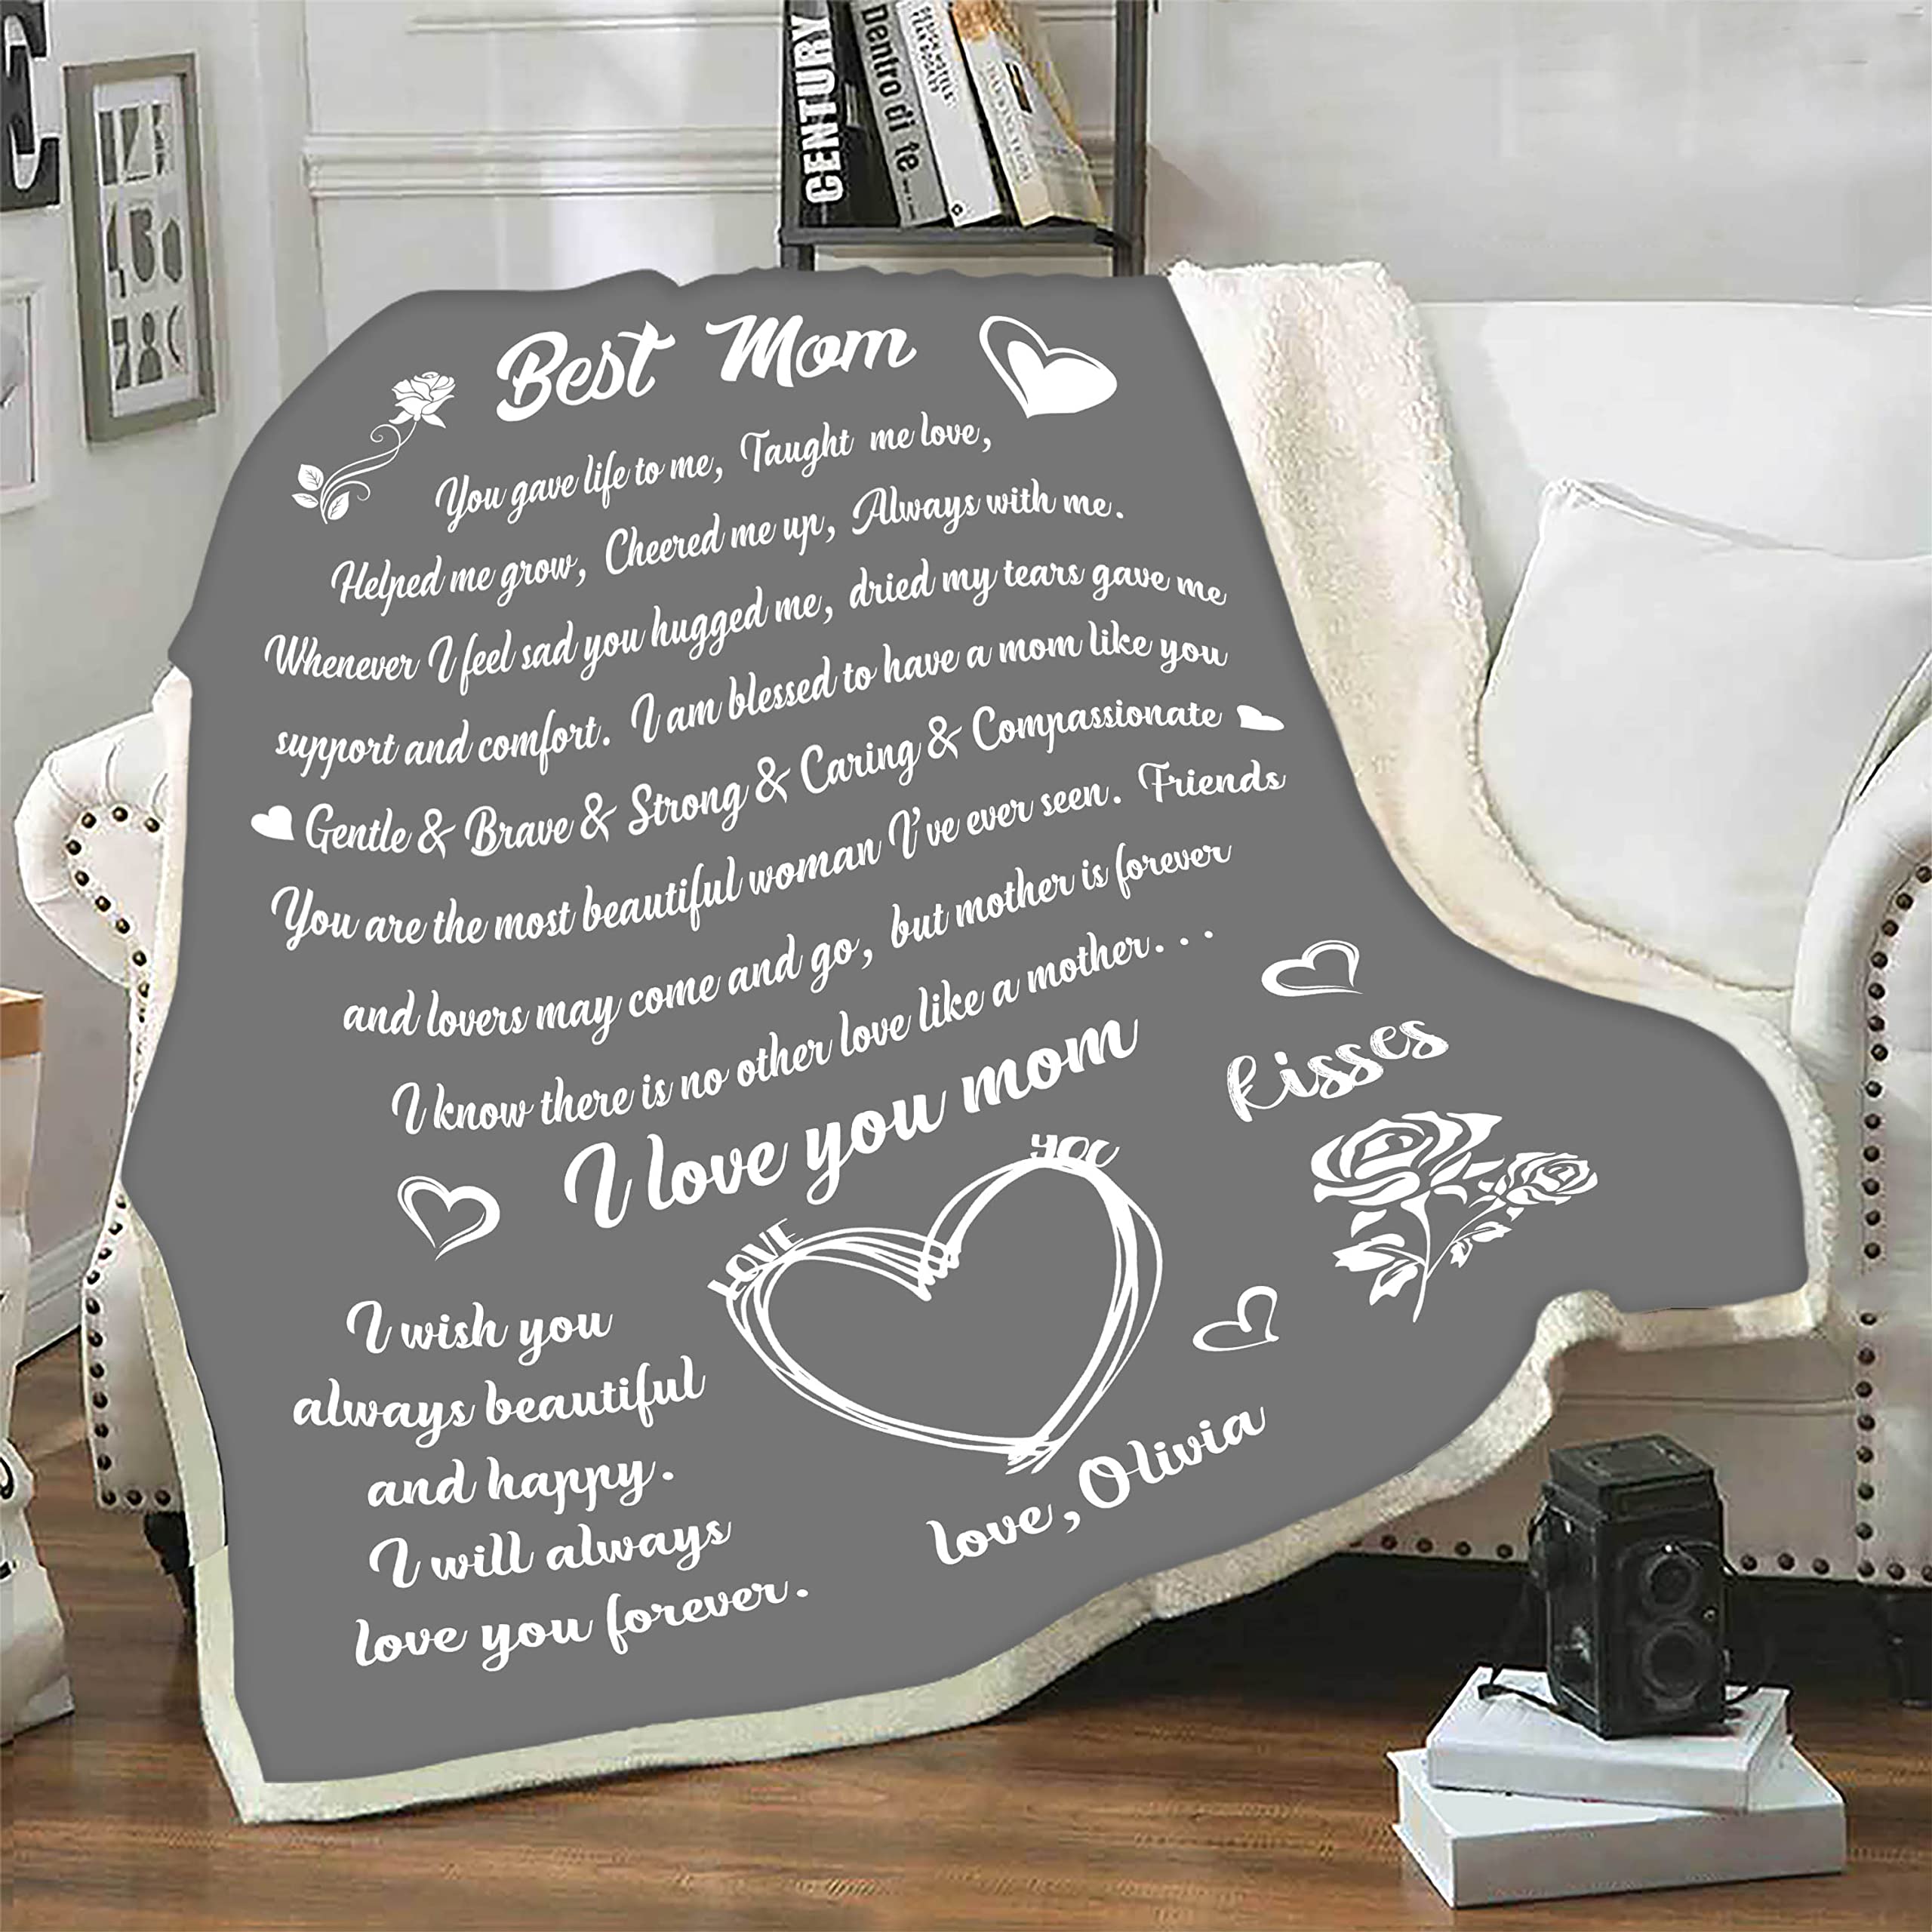 CENTURY
Dentro di te
Best Mom
You gave life to me, Taught me love,
Helped me grow, Cheered me up, Always with me.
Whenever I feel sad you hugged me, dried my tears gave me
support and comfort. I am blessed to have a mom like you
Gentle & Brave & Strong & Caring & Compassionate
You are the most beautiful woman I've ever seen. Friends
and lovers may come and go, but mother is forever
I know there is no other love like a mother...
I love you mom
Kisses
LOVE
YOU
I wish you
always beautiful
and happy.
I will always
love you forever.
love, Olivia